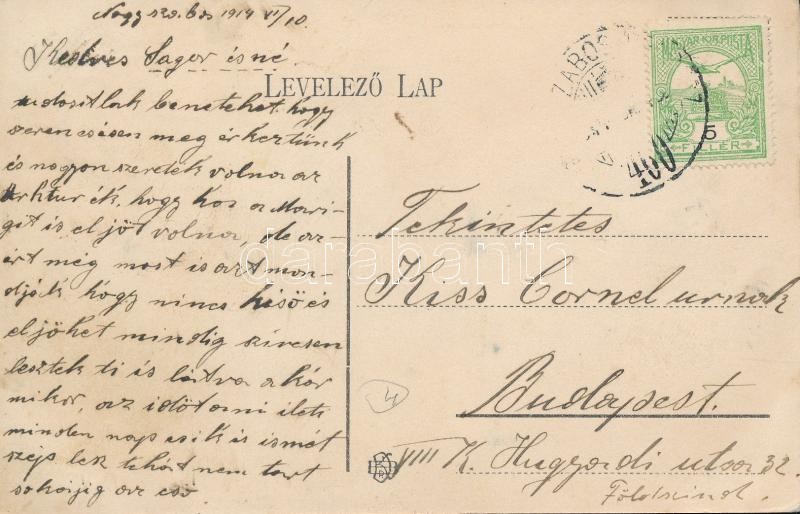 Nagy szo.bos 1914 VI/10.
Kedves Sagor ésné
LEVELEZŐ LAP
tudositlak beneteket, hogy
szerencsésen meg érkeztünk
és nagyon szeretek volna az
hogy ha a Mari-
git is el jöt volna, de az-
ért még most is azt mon-
dják hogy nincs késö és
el jöhet mindig szivesen
lesztek ti is látva akár
mikor, az idöt ami illeti
minden nap esik is ismét
szép lesz tehát nem tart
sokáig az eső
MAGYAR KIR. POSTA
5
FILLÉR
400
Tekintetes
Kiss Cornel urnak
Budapest.
VIII K. Hungardi utsa 32.
Földszint.
4
darabanth